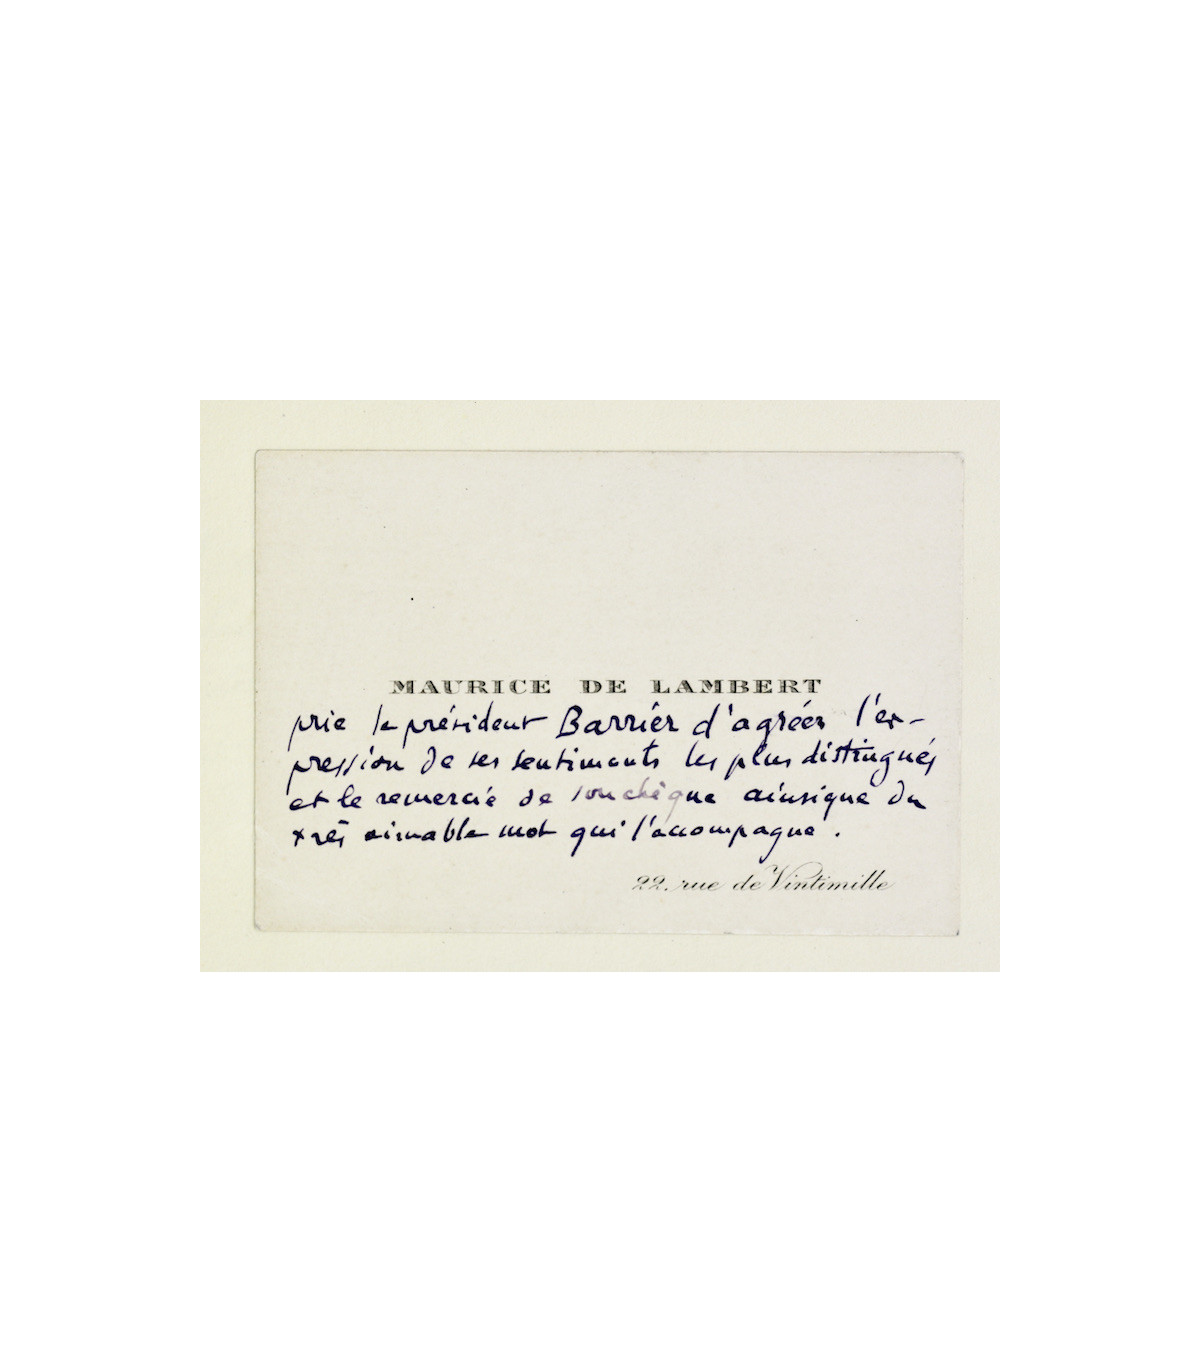 MAURICE DE LAMBERT
prie le président Barrier d'agréer l'ex-
pression de ses sentiments les plus distingués
et le remercie de son chèque ainsi que du
très aimable mot qui l'accompagne.
22. rue de Vintimille